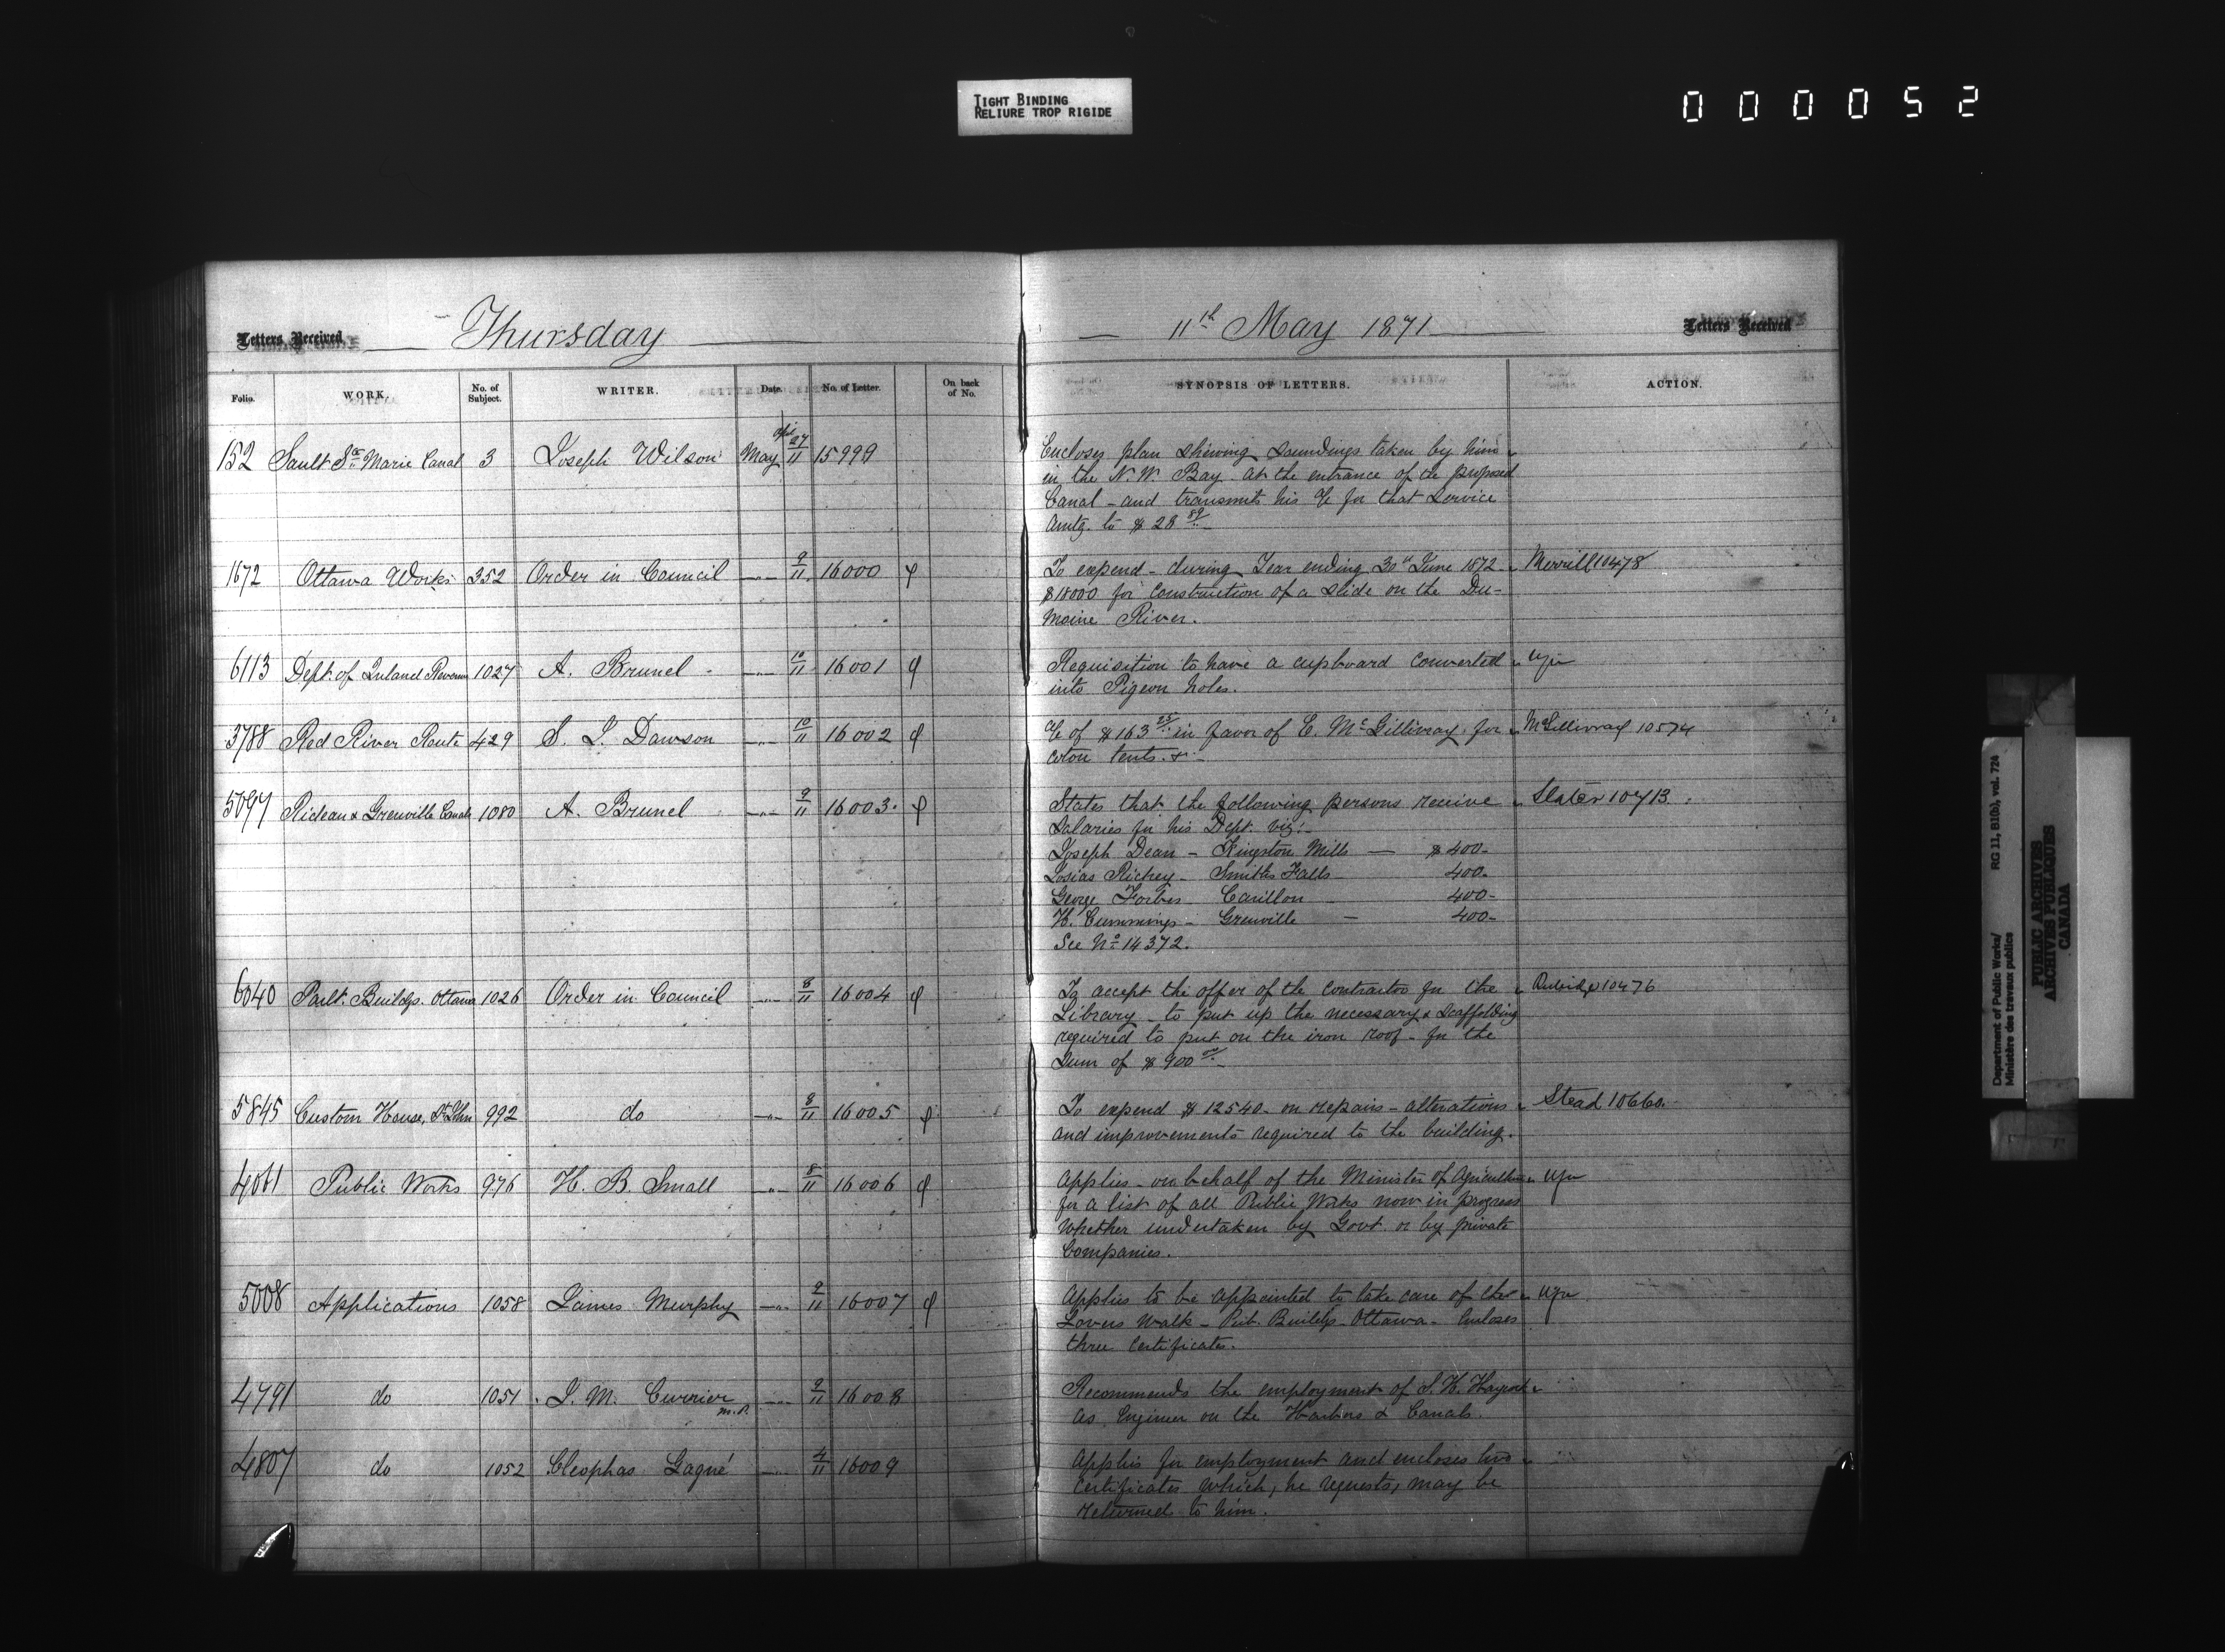 TIGHT BINDING
RELIURE TROP RIGIDE
000052
Letters Received
Thursday
11th May 1871
Letters Received
Folio. WORK. No. of Subject. WRITER. Date. No. of Letter. On back of No. SYNOPSIS OF LETTERS. ACTION.
152 Sault Ste Marie Canal 3 Joseph Wilson May April 27/11 15999 Encloses plan shewing soundings taken by him
in the N. W. Bay at the entrance of the proposed
Canal - and transmits his a/c for that service
amtg. to $ 28 89/..
1672 Ottawa Works 352 Order in Council " 9/11 16000 To expend - during Year ending 30th June 1872 Merrill 10478
$18000 for construction of a slide on the Du-
moine River.
6113 Dept. of Inland Revenue 1027 A. Brunel " 10/11 16001 Requisition to have a cupboard converted
into Pigeon holes.
3788 Red River Route 429 S. J. Dawson " 10/11 16002 a/c of $ 163 25/.. in favor of E. McGillivray for McGillivray 10574
coton tents. &
5097 Rideau & Grenville Canals 1080 A. Brunel " 9/11 16003 States that the following persons receive Slater 10713
salaries in his Dept. viz:
Joseph Dean - Kingston Mills — $ 400-
Josias Richey - Smiths Falls 400-
George Forbes - Carillon - 400-
H. Cummings - Grenville - 400-
See No 14372.
6040 Parlt. Buildgs. Ottawa 1026 Order in Council " 8/11 16004 To accept the offer of the contractor for the 10476
Library - to put up the necessary scaffolding
required to put on the iron roof - for the
sum of $ 900 00/..
5845 Custom House, St John 992 do " 8/11 16005 To expend $ 12540 - on repairs - alterations Stead 10660
and improvements required to the building.
4061 Public Works 976 H. B. Small " 8/11 16006 Applies - on behalf of the Minister of Agriculture
for a list of all Public Works now in progress
whether undertaken by Govt. or by private
Companies.
5008 Applications 1058 James Murphy " 9/11 16007 Applies to be appointed to take care of the
Lovers Walk - Pub. Buildgs - Ottawa - Encloses
three certificates.
4791 do 1051 J. M. Currier M.P. " 9/11 16008 Recommends the employment of S. H. Haycock
as Engineer on the Harbors & Canals.
4807 do 1052 Cleophas Gagné " 4/11 16009 Applies for employment and encloses two
certificates which, he requests, may be
returned to him.
Department of Public Works/
Ministère des travaux publics
RG 11, B1(b), vol. 724
PUBLIC ARCHIVES
ARCHIVES PUBLIQUES
CANADA